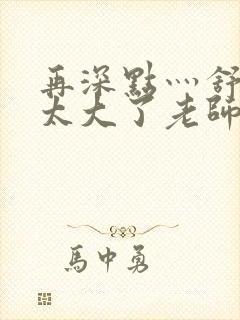 再深點灬舒
太大了老師
馬中勇